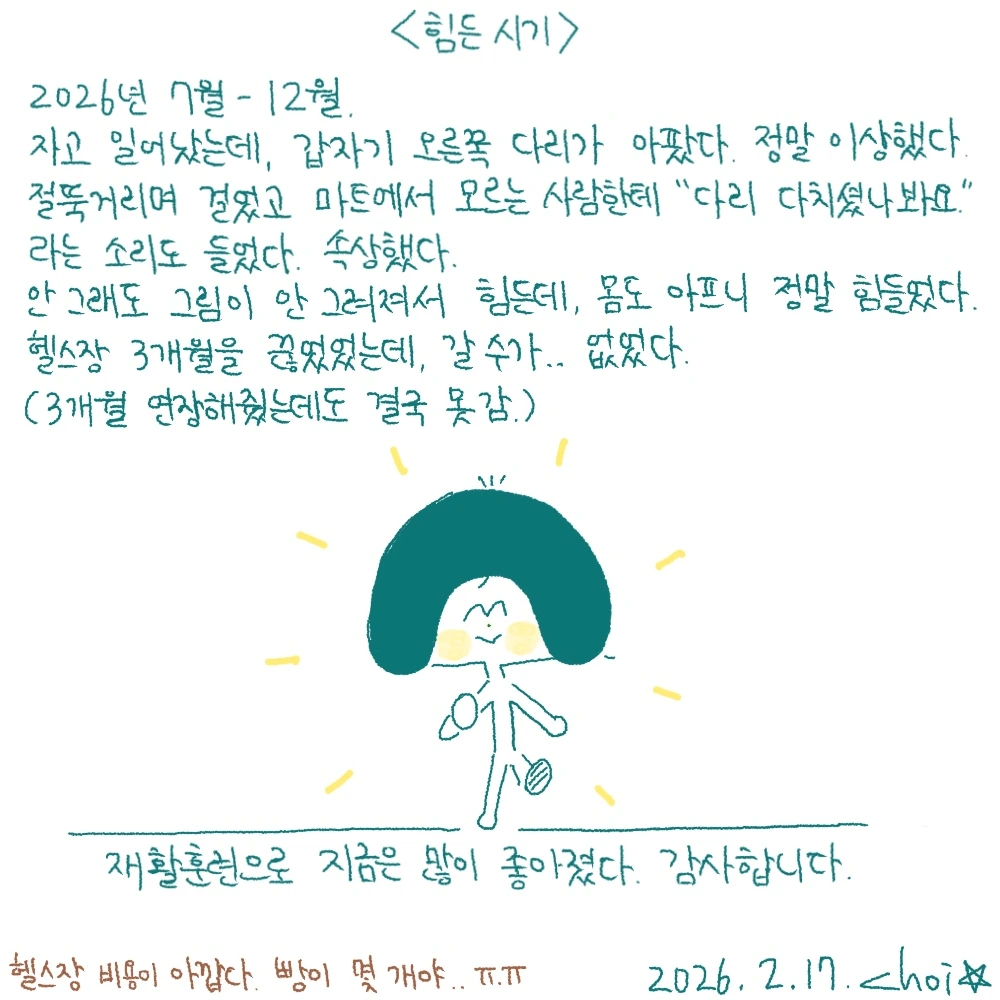 <힘든 시기>
2026년 7월 - 12월.
자고 일어났는데, 갑자기 오른쪽 다리가 아팠다. 정말 이상했다.
절뚝거리며 걸었고 마트에서 모르는 사람한테 "다리 다치셨나봐요."
라는 소리도 들었다. 속상했다.
안 그래도 그림이 안 그려져서 힘든데, 몸도 아프니 정말 힘들었다.
헬스장 3개월을 끊었었는데, 갈 수가.. 없었다.
(3개월 연장해줬는데도 결국 못 감.)
재활훈련으로 지금은 많이 좋아졌다. 감사합니다.
헬스장 비용이 아깝다. 빵이 몇 개야.. ㅠ.ㅠ
2026. 2. 17. choi☆